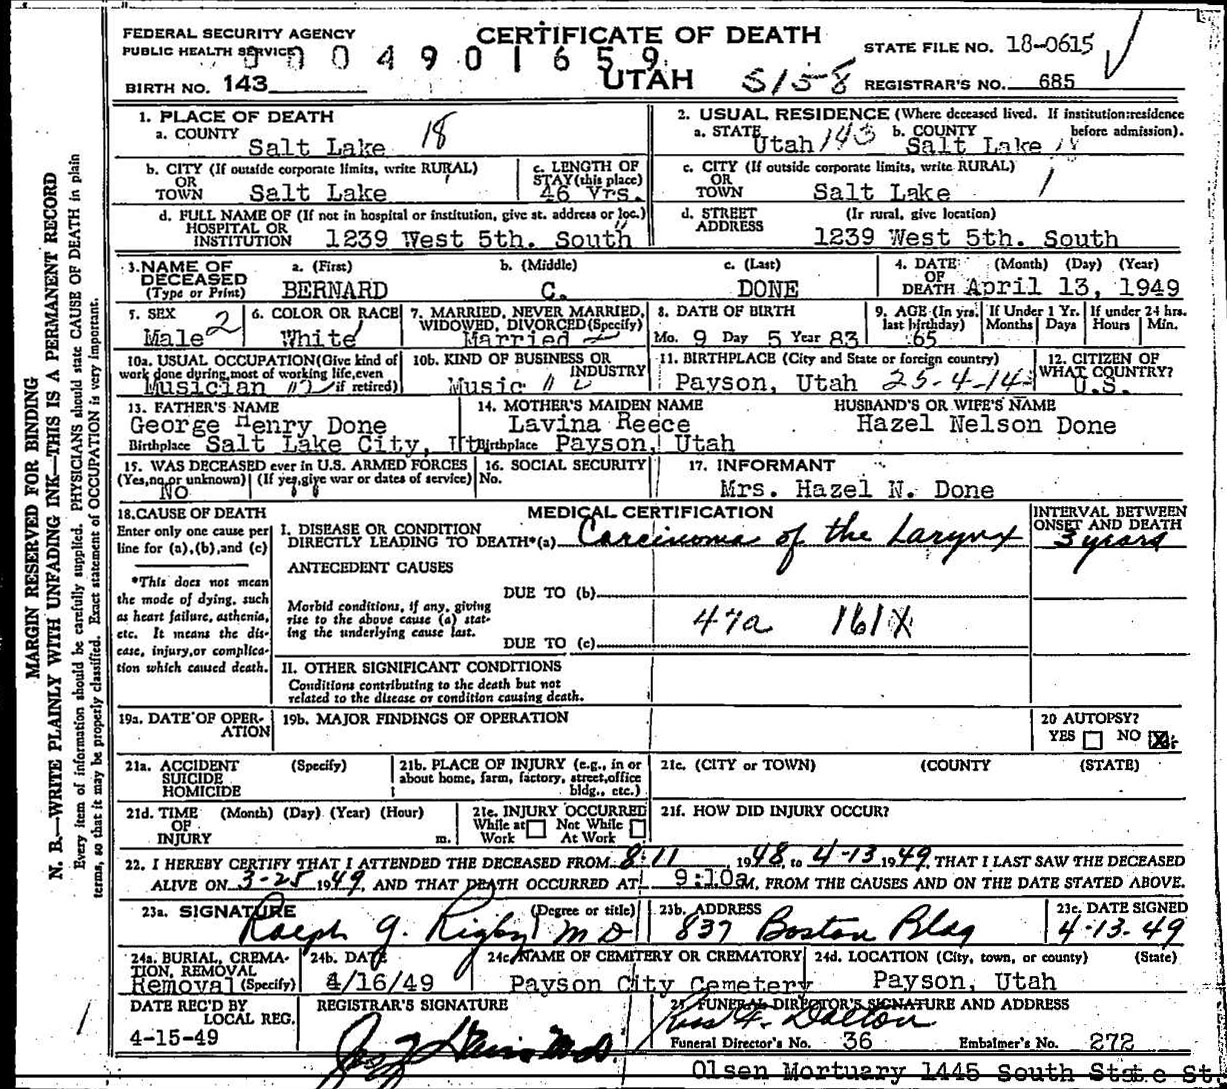 FEDERAL SECURITY AGENCY
PUBLIC HEALTH SERVICE
CERTIFICATE OF DEATH
STATE FILE NO. 18-0615
0 0 0 4 9 0 1 6 5 9
UTAH
5158
BIRTH NO. 143
REGISTRAR'S NO. 685
1. PLACE OF DEATH
a. COUNTY
Salt Lake 18
2. USUAL RESIDENCE (Where deceased lived. If institution:residence before admission).
a. STATE Utah 143 b. COUNTY Salt Lake 18
b. CITY (If outside corporate limits, write RURAL)
OR
TOWN Salt Lake
c. LENGTH OF
STAY(this place)
46 Yrs.
c. CITY (If outside corporate limits, write RURAL)
OR
TOWN Salt Lake 1
d. FULL NAME OF (If not in hospital or institution, give st. address or loc.)
HOSPITAL OR
INSTITUTION 1239 West 5th. South
d. STREET (Ir rural, give location)
ADDRESS
1239 West 5th. South
3.NAME OF
DECEASED
(Type or Print)
a. (First) b. (Middle) c. (Last)
BERNARD C. DONE
4. DATE (Month) (Day) (Year)
OF
DEATH April 13, 1949
5. SEX
Male 2
6. COLOR OR RACE
White
7. MARRIED, NEVER MARRIED,
WIDOWED, DIVORCED(Specify)
Married
8. DATE OF BIRTH
Mo. 9 Day 5 Year 83
9. AGE (In yrs. last birthday)
65
If Under 1 Yr.
Months Days
If under 24 hrs.
Hours Min.
10a. USUAL OCCUPATION(Give kind of
work done during most of working life,even
if retired)
Musician
10b. KIND OF BUSINESS OR
INDUSTRY
Music
11. BIRTHPLACE (City and State or foreign country)
Payson, Utah 25-4-14
12. CITIZEN OF
WHAT COUNTRY?
U.S.
13. FATHER'S NAME
George Henry Done
Birthplace Salt Lake City, Ut
14. MOTHER'S MAIDEN NAME
Lavina Reece
Birthplace Payson, Utah
HUSBAND'S OR WIFE'S NAME
Hazel Nelson Done
15. WAS DECEASED ever in U.S. ARMED FORCES
(Yes,no,or unknown) (If yes,give war or dates of service)
No
16. SOCIAL SECURITY
No.
17. INFORMANT
Mrs. Hazel N. Done
18.CAUSE OF DEATH
Enter only one cause per
line for (a),(b),and (c)
*This does not mean
the mode of dying, such
as heart failure, asthenia,
etc. It means the dis-
ease, injury,or complica-
tion which caused death.
MEDICAL CERTIFICATION
I. DISEASE OR CONDITION
DIRECTLY LEADING TO DEATH*(a) Carcinoma of the Larynx
INTERVAL BETWEEN
ONSET AND DEATH
3 years
ANTECEDENT CAUSES
DUE TO (b)
Morbid conditions, if any, giving
rise to the above cause (a) stat-
ing the underlying cause last.
47a 161X
DUE TO (c)
II. OTHER SIGNIFICANT CONDITIONS
Conditions contributing to the death but not
related to the disease or condition causing death.
19a. DATE OF OPER-
ATION
19b. MAJOR FINDINGS OF OPERATION
20 AUTOPSY?
YES NO
21a. ACCIDENT (Specify)
SUICIDE
HOMICIDE
21b. PLACE OF INJURY (e.g., in or
about home, farm, factory, street,office
bldg., etc.)
21c. (CITY or TOWN) (COUNTY (STATE)
21d. TIME (Month) (Day) (Year) (Hour)
OF
INJURY m.
21e. INJURY OCCURRED
While at Not While
Work At Work
21f. HOW DID INJURY OCCUR?
22. I HEREBY CERTIFY THAT I ATTENDED THE DECEASED FROM 8:11, 1948, to 4-13 1949, THAT I LAST SAW THE DECEASED
ALIVE ON 3-25 1949 AND THAT DEATH OCCURRED AT 9:10a M, FROM THE CAUSES AND ON THE DATE STATED ABOVE.
23a. SIGNATURE (Degree or title)
Ralph G. Rigby M D
23b. ADDRESS
837 Boston Bldg
23c. DATE SIGNED
4-13-49
24a. BURIAL, CREMA-
TION, REMOVAL
Removal (Specify)
24b. DATE
4/16/49
24c. NAME OF CEMITERY OR CREMATORY
Payson City Cemetery
24d. LOCATION (City, town, or county) (State)
Payson, Utah
DATE REC'D BY
LOCAL REG.
4-15-49
REGISTRAR'S SIGNATURE
25. FUNERAL DIRECTOR'S SIGNATURE AND ADDRESS
Dalton
Funeral Director's No. 36 Embalmer's No. 272
Olsen Mortuary 1445 South State St.
MARGIN RESERVED FOR BINDING
N. B.—WRITE PLAINLY WITH UNFADING INK—THIS IS A PERMANENT RECORD
Every item of information should be carefully supplied. PHYSICIANS should state CAUSE OF DEATH in plain
terms, so that it may be properly classified. Exact statement of OCCUPATION is very important.